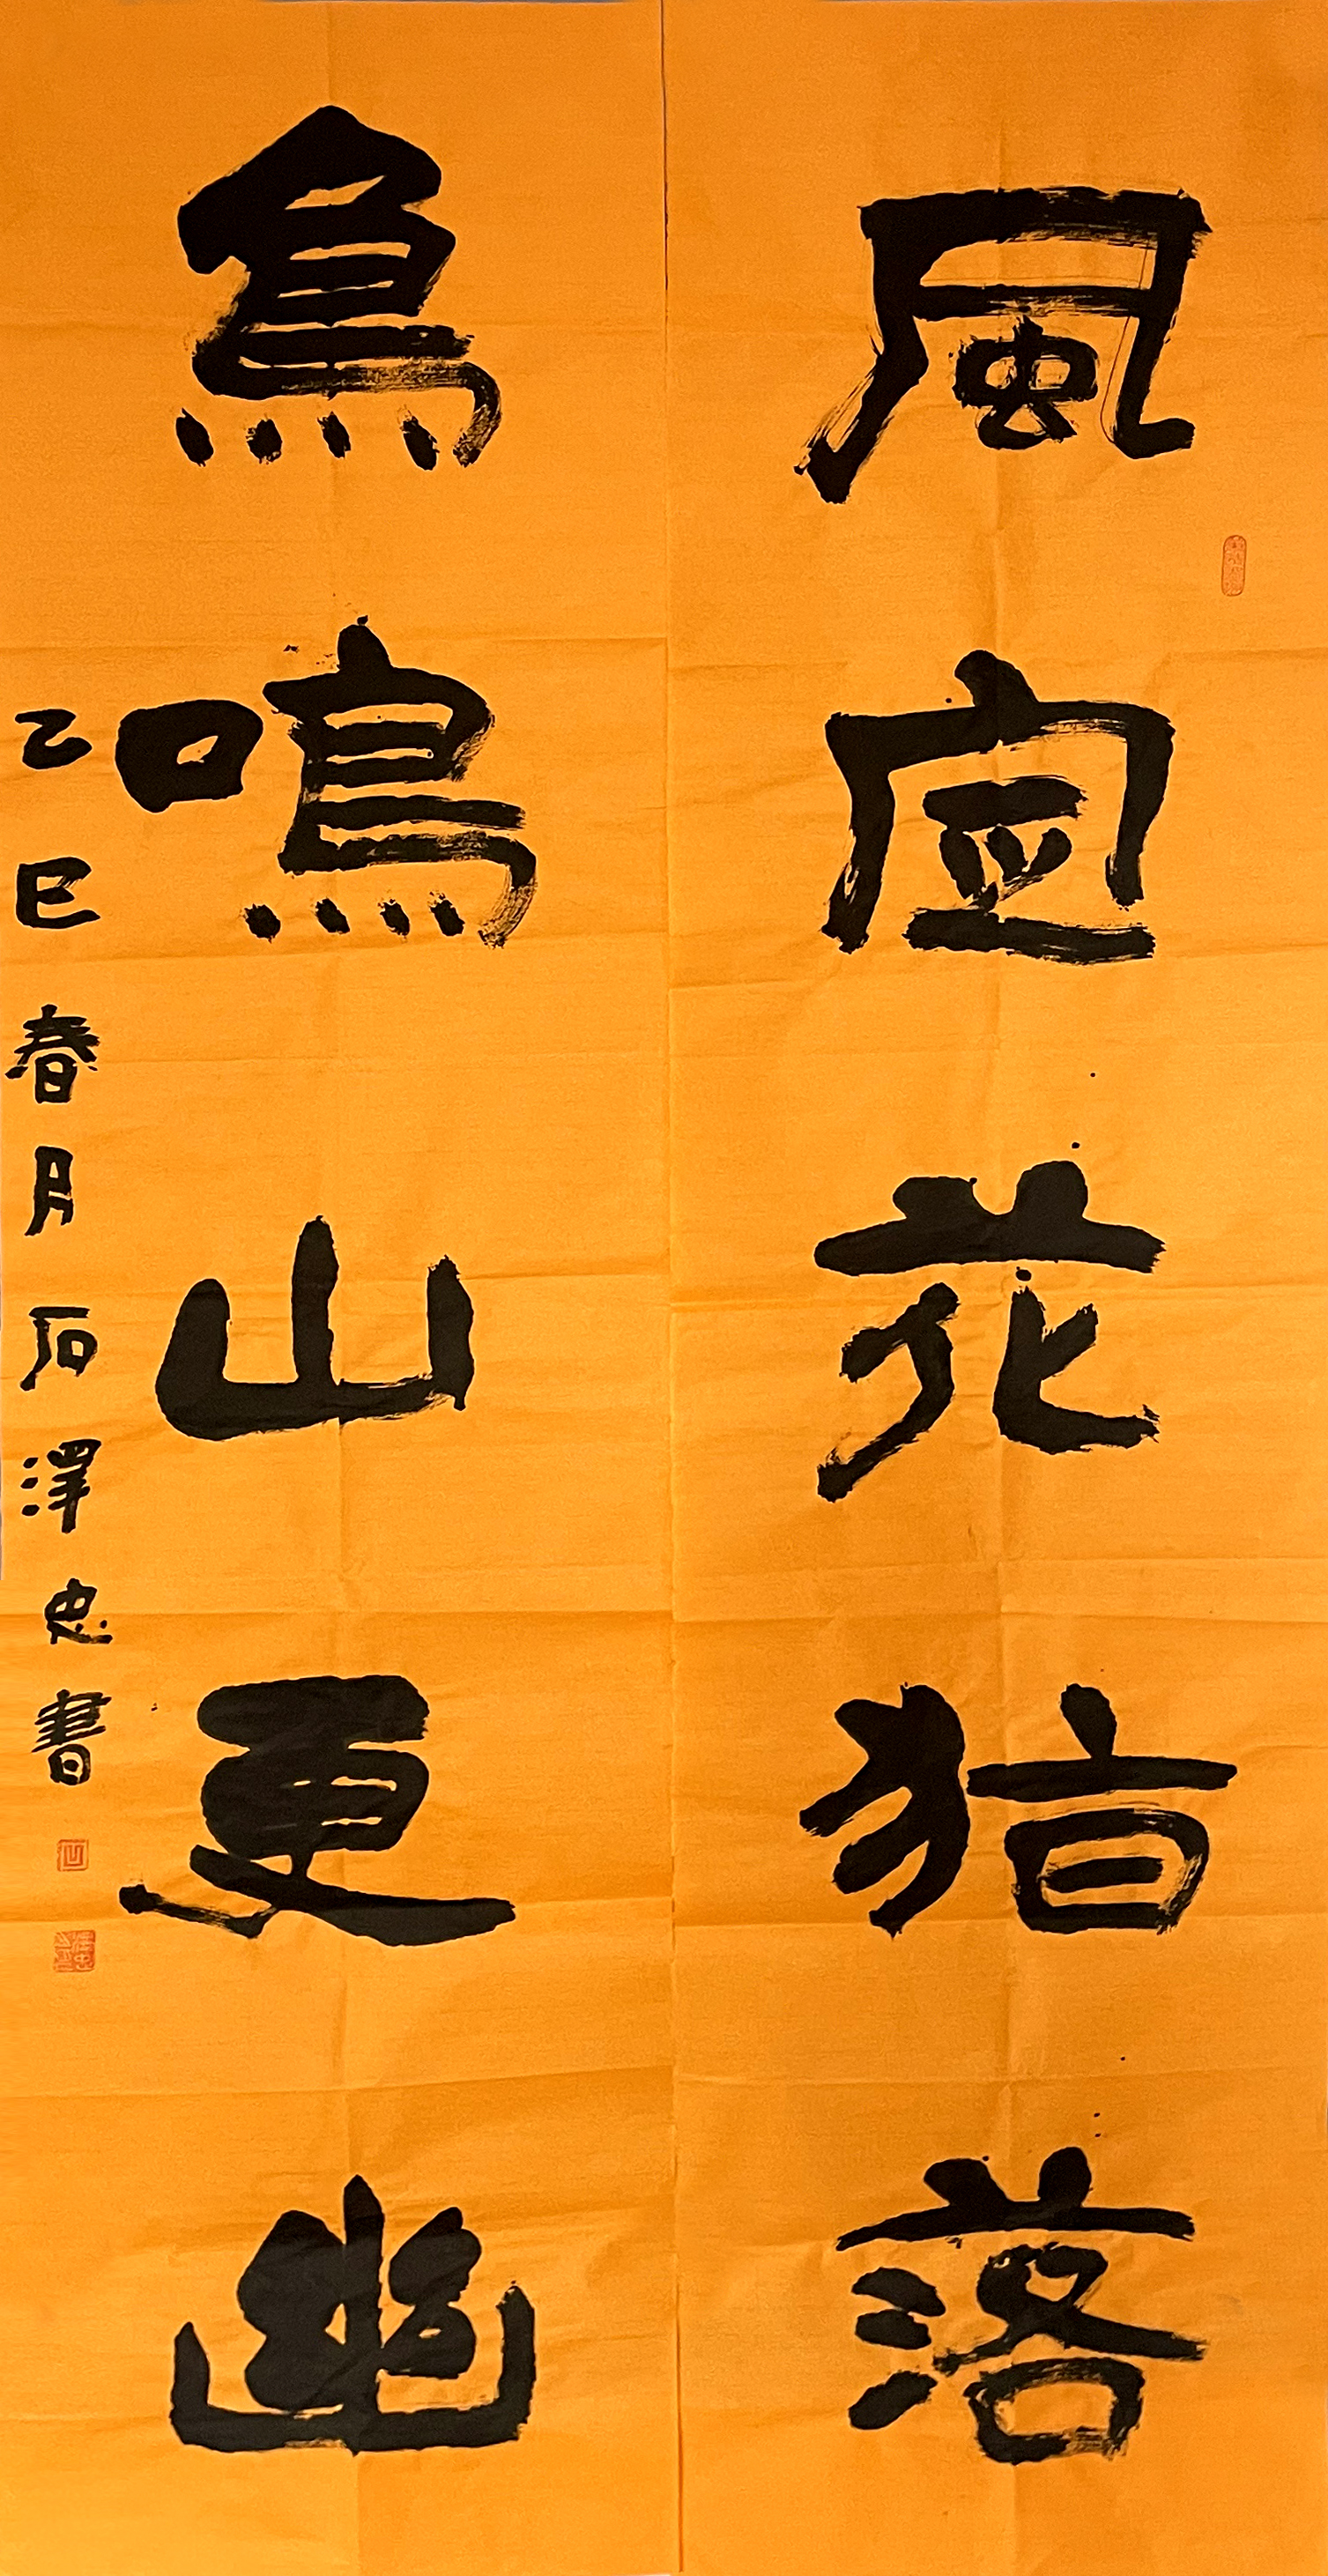 風定花猶落
鳥鳴山更幽
乙巳春月石澤忠書